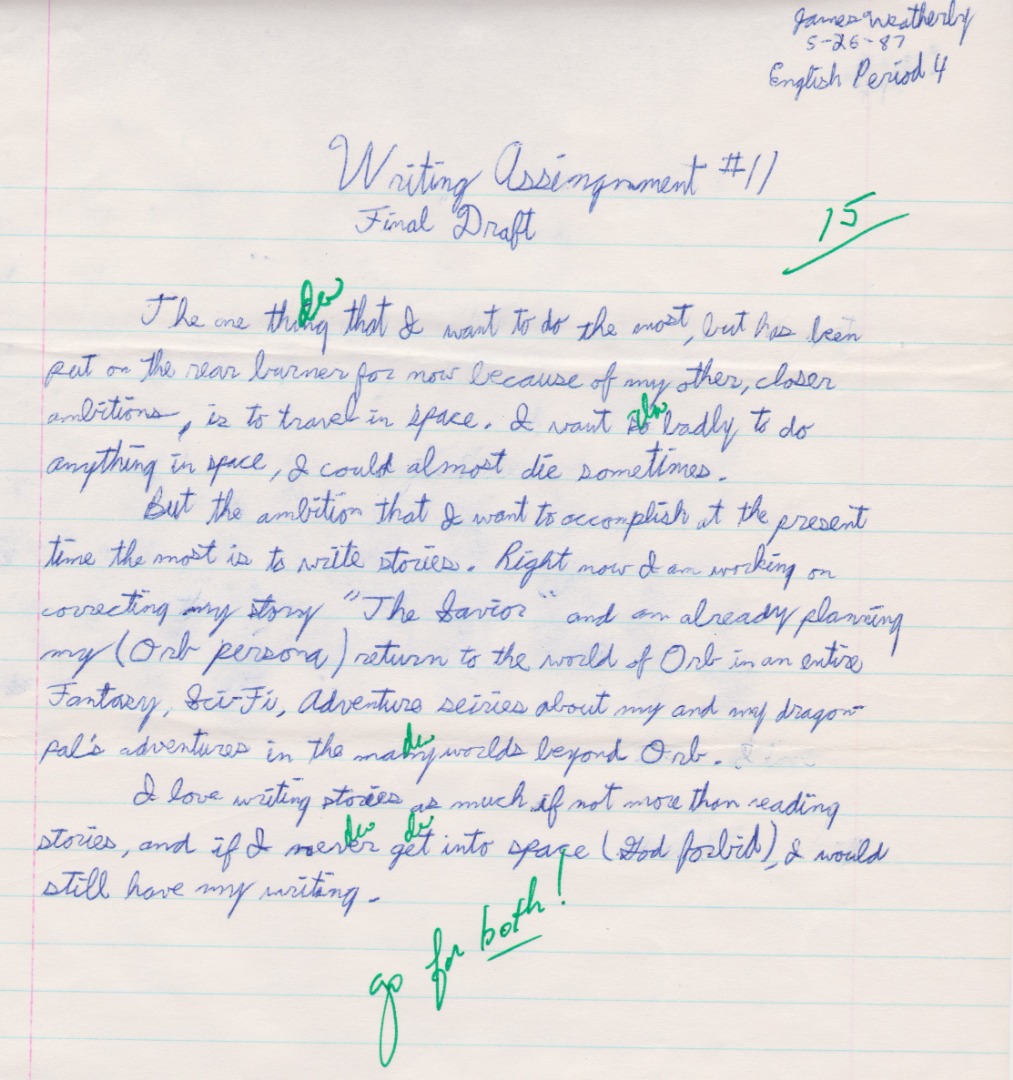 James Weatherby
5-26-87
English Period 4
Writing Assingnment #11
Final Draft
15
The one thing that I want to do the most, but has been
put on the rear burner for now because of my other, closer
ambitions, is to travel in space. I want so badly to do
anything in space, I could almost die sometimes.
But the ambition that I want to accomplish at the present
time the most is to write stories. Right now I am working on
correcting my story "The Savior" and am already planning
my (Orb persona) return to the world of Orb in an entire
Fantasy, Sci-Fi, Adventure seiries about my and my dragon-
pal's adventures in the many worlds beyond Orb.
I love writing stories as much if not more than reading
stories, and if I never get into space (God forbid), I would
still have my writing.
go for both!